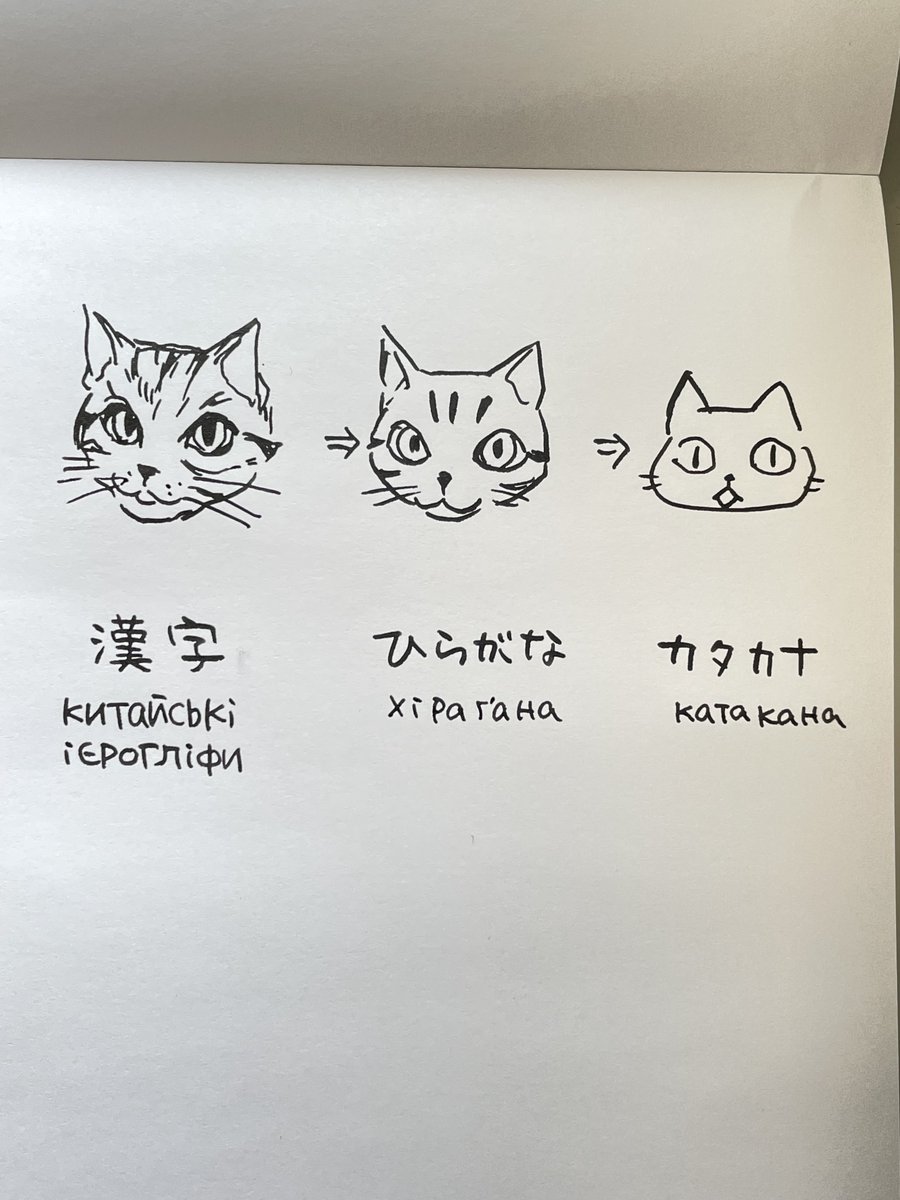 漢字
китайські
ієрогліфи
ひらがな
хіраґана
カタカナ
катакана